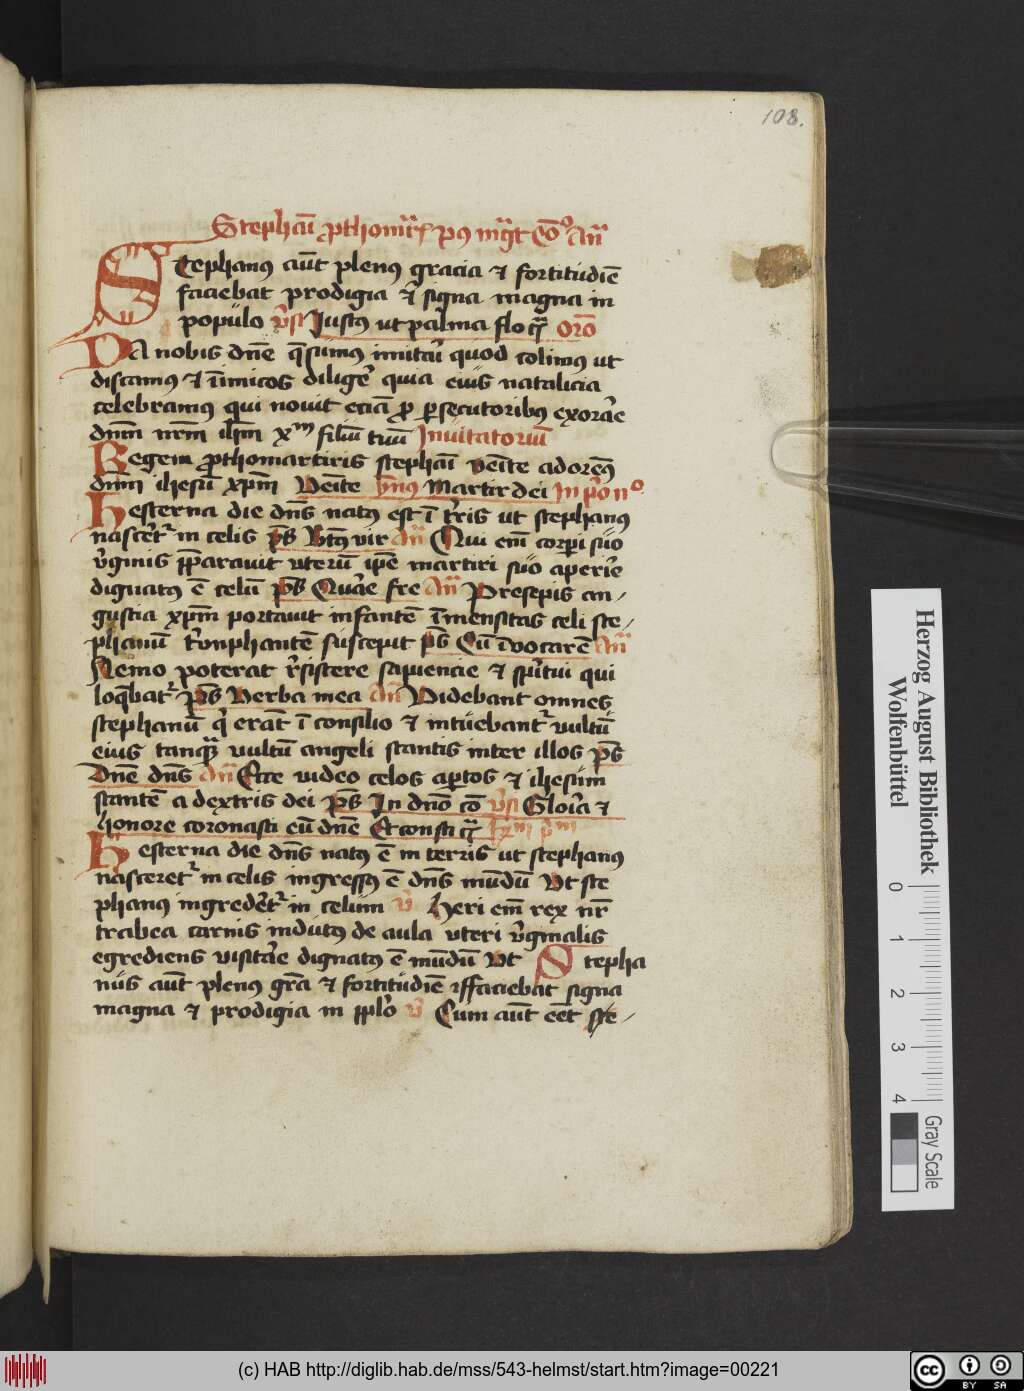 108.
Stephaī ꝓthomr̄is pꝯ mgͣt Cōͦ an̄
Stephanꝯ aūt plenꝯ gracia ⁊ fortitudīe
faciebat prodigia ⁊ signa magna in
populo v̄s Justꝯ ut palma flo qͣ orō
Da nobis dn̄e q̄sumus imitaʳi quod colimꝯ ut
discamꝯ ⁊ īimicos diligēʳ quia eiꝯ natalicia
celebramꝯ qui novit eciā ꝓ ꝑsecutoribꝯ exorāe
dnm̄ nrm̄ ih̄m xᵐ filiū tuū Inuitatoriū
Regem ꝓthomartiris stephaī veīte adoremꝯ
dnm̄ ihesū xp̄m Veīte ymꝯ Martir dei In pͥo nᵒ
Hesterna die dn̄s natꝯ est ī tr̄ris ut stephanꝯ
nascētʳ in celis p̄s Btꝯ vir an̄ Qui em̄ corpi suo
v̄ginis p̄parauit uterū ip̄e martiri suo aperīe
dignatꝯ ē celū p̄s Quāe fre An̄ Presepis an-
gustia xp̄m portauit infantē īmensitas celi ste-
phanū tͥunphantē suscepit p̄s Cū īuocarē an̄
Nemo poterat r̄sistere sapiencie ⁊ spͥtui qui
loq̄batʳ p̄s Verba mea an̄ Videbant omnes
stephanū qͥ erāt ī consilio ⁊ intuebantʳ vultū
eius tanqͣ vultū angeli stantis inter illos p̄s
Dn̄e dn̄s an̄ Ecce video celos aꝑtos ⁊ ihesum
stantē a dextris dei p̄s In dn̄o cō v̄s Gloīa ⁊
honore coronasti eū dn̄e Et consti qͣ
Hesterna die dn̄s natꝯ ē in terris ut stephanꝯ
nasceretʳ in celis ingressꝯ ē dn̄s mūdū Vt ste
phanꝯ ingredēt̄ʳ in celum v̄ Heri em̄ rex nr̄
trabea carnis indutꝯ de aula uteri v̄ginalis
egrediens visitāe dignatꝯ ē mūdū Vt Stepha
nus aūt plenꝯ gr̄a ⁊ fortitudīe faciebat signa
magna ⁊ prodigia in pplͦo v̄ Cum aūt eēt ste-
Herzog August Bibliothek
Wolfenbüttel
0 1 2 3 4
Gray Scale
(c) HAB http://diglib.hab.de/mss/543-helmst/start.htm?image=00221
cc BY SA